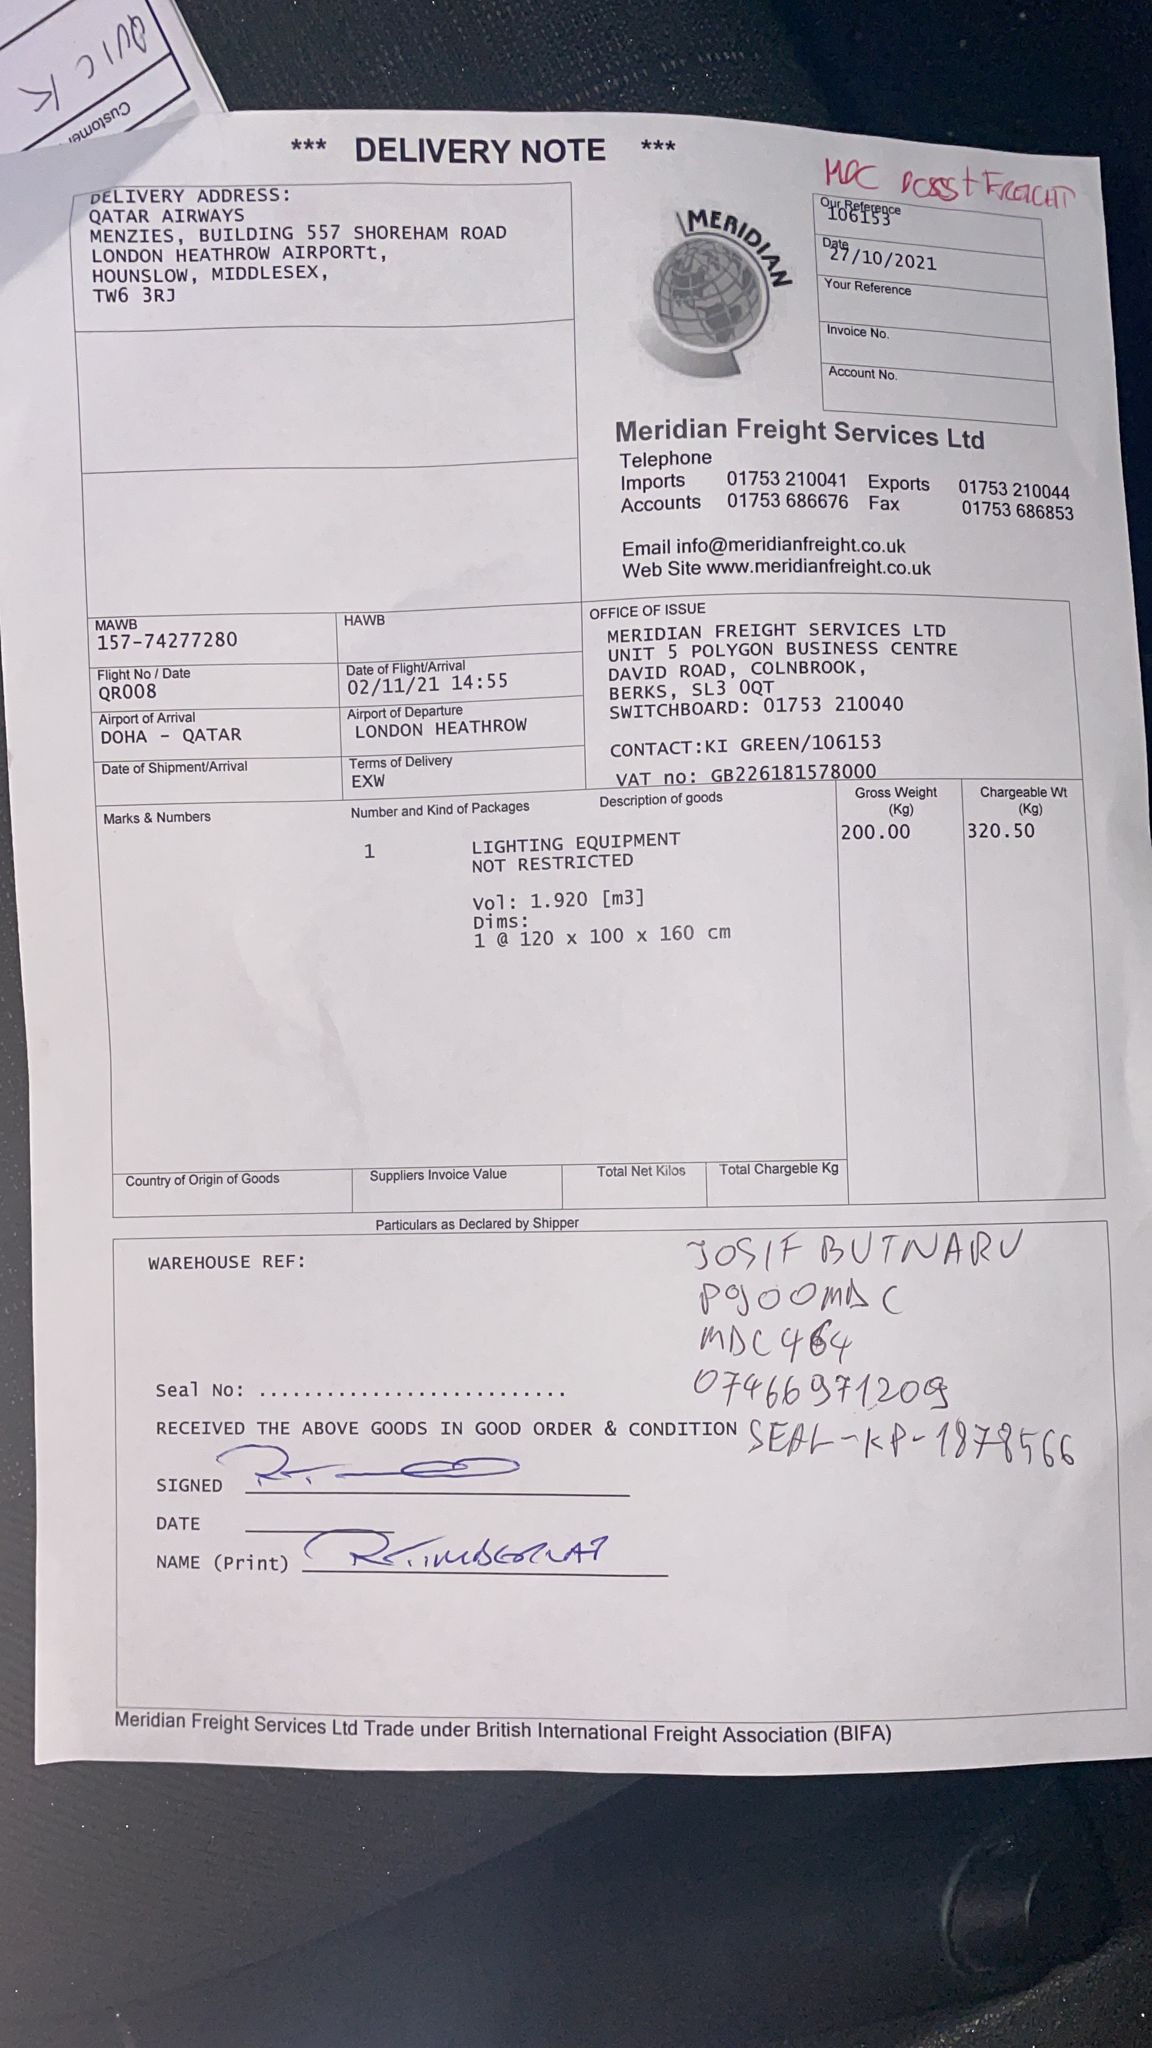 QUICK
Customer
*** DELIVERY NOTE ***
MDC
FREIGHT
DELIVERY ADDRESS:
QATAR AIRWAYS
MENZIES, BUILDING 557 SHOREHAM ROAD
LONDON HEATHROW AIRPORTt,
HOUNSLOW, MIDDLESEX,
TW6 3RJ
MERIDIAN
Our Reference
106153
Date
27/10/2021
Your Reference
Invoice No.
Account No.
Meridian Freight Services Ltd
Telephone
Imports 01753 210041 Exports 01753 210044
Accounts 01753 686676 Fax 01753 686853
Email info@meridianfreight.co.uk
Web Site www.meridianfreight.co.uk
MAWB
157-74277280
HAWB
Flight No / Date
QR008
Date of Flight/Arrival
02/11/21 14:55
Airport of Arrival
DOHA - QATAR
Airport of Departure
LONDON HEATHROW
Date of Shipment/Arrival
Terms of Delivery
EXW
OFFICE OF ISSUE
MERIDIAN FREIGHT SERVICES LTD
UNIT 5 POLYGON BUSINESS CENTRE
DAVID ROAD, COLNBROOK,
BERKS, SL3 0QT
SWITCHBOARD: 01753 210040
CONTACT:KI GREEN/106153
VAT no: GB226181578000
Marks & Numbers
Number and Kind of Packages
Description of goods
Gross Weight
(Kg)
Chargeable Wt
(Kg)
1 LIGHTING EQUIPMENT 200.00 320.50
NOT RESTRICTED
Vol: 1.920 [m3]
Dims:
1 @ 120 x 100 x 160 cm
Country of Origin of Goods
Suppliers Invoice Value
Total Net Kilos
Total Chargeble Kg
Particulars as Declared by Shipper
WAREHOUSE REF:
JOSIF BUTNARU
PO900MDC
MDC464
07466971209
Seal No: ...........................
RECEIVED THE ABOVE GOODS IN GOOD ORDER & CONDITION
SEAL-KP-1878566
SIGNED
DATE
NAME (Print)
Meridian Freight Services Ltd Trade under British International Freight Association (BIFA)